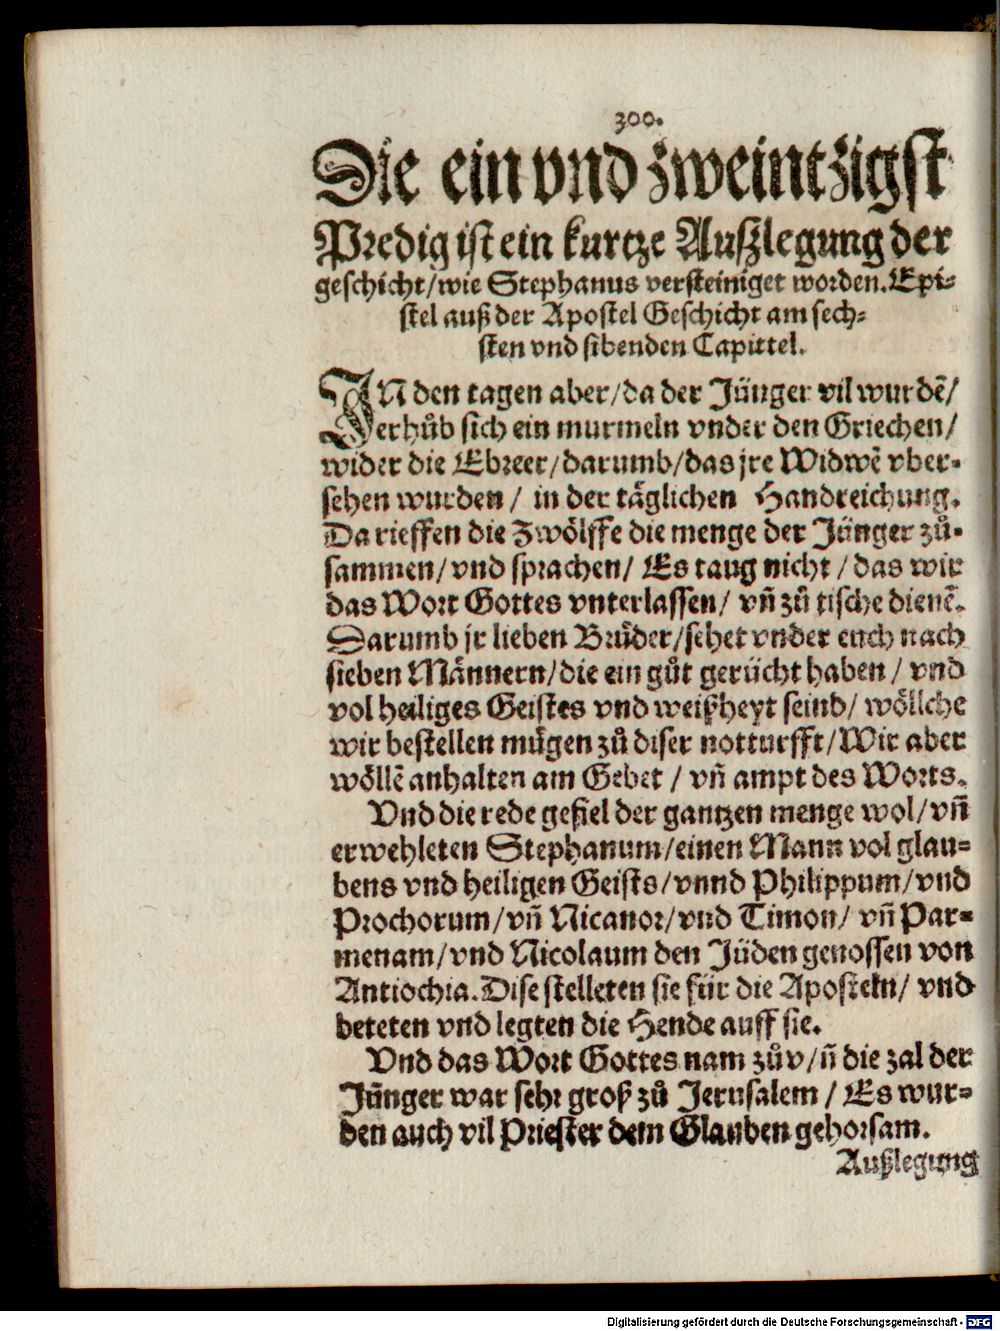 300.
Die ein vnd zweintzigst
Predig ist ein kurtze Außlegung der
geschicht/wie Stephanus versteiniget worden.Epi=
stel auß der Apostel Geschicht am sech=
sten vnd sibenden Capittel.
IN den tagen aber/da der Jünger vil wurdẽ/
erhůb sich ein murmeln vnder den Griechen/
wider die Ebreer/darumb/das jre Widwẽ vber=
sehen wurden/ in der täglichen Handreichung.
Da rieffen die Zwölffe die menge der Jünger zů=
sammen/vnd sprachen/ Es taug nicht/das wir
das Wort Gottes vnterlassen/ vñ zů tische dienẽ.
Darumb jr lieben Brüder/sehet vnder euch nach
sieben Männern/die ein gůt gerücht haben/ vnd
vol heiliges Geistes vnd weißheyt seind/ wöllche
wir bestellen mügen zů diser notturfft/Wir aber
wöllẽ anhalten am Gebet / vñ ampt des Worts.
Vnd die rede gefiel der gantzen menge wol/vñ
erwehleten Stephanum/einen Mann vol glau=
bens vnd heiligen Geists/vnnd Philippum/vnd
Prochorum/vñ Nicanor/vnd Timon/ vñ Par=
menam/vnd Nicolaum den Jüden genossen von
Antiochia.Dise stelleten sie für die Aposteln/ vnd
beteten vnd legten die Hende auff sie.
Vnd das Wort Gottes nam zův/ñ die zal der
Jünger war sehr groß zů Jerusalem / Es wur=
den auch vil Priester dem Glauben gehorsam.
Außlegung
Digitalisierung gefördert durch die Deutsche Forschungsgemeinschaft - DFG